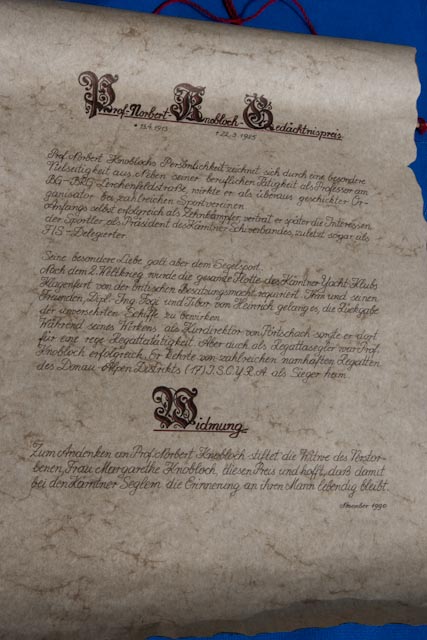 Prof.-Norbert-Knobloch-Gedächtnispreis
* 13.4.1913 † 22.3.1985
Prof. Norbert Knoblochs Persönlichkeit zeichnet sich durch eine besondere
Vielseitigkeit aus. Neben seiner beruflichen Tätigkeit als Professor am
BG-BRG-Lerchenfeldstraße, wirkte er als überaus geschickter Or-
ganisator bei zahlreichen Sportvereinen.
Anfangs selbst erfolgreich als Zehnkämpfer, vertrat er später die Interessen
der Sportler als Präsident des Kärntner Schiverbandes, zuletzt sogar als
FIS-Delegierter.
Seine besondere Liebe galt aber dem Segelsport.
Nach dem 2. Weltkrieg wurde die gesamte Flotte des Kärntner Yacht Klubs
Klagenfurt von der britischen Besatzungsmacht requiriert. Ihm und seinen
Freunden, Dipl.-Ing. Gogi und Tibor von Heinrich gelang es, die Rückgabe
der unversehrten Schiffe zu bewirken.
Während seines Wirkens als Kurdirektor von Pörtschach sorgte er dort
für eine rege Regattatätigkeit. Aber auch als Regattasegler war Prof.
Knobloch erfolgreich. Er kehrte von zahlreichen namhaften Regatten
des Donau-Alpen Distrikts (17) I.S.C.Y.R.A. als Sieger heim.
Widmung
Zum Andenken an Prof. Norbert Knobloch stiftet die Witwe des Verstor-
benen, Frau Margarethe Knobloch, diesen Preis und hofft, daß damit
bei den Kärntner Seglern die Erinnerung an ihren Mann lebendig bleibt.
November 1990